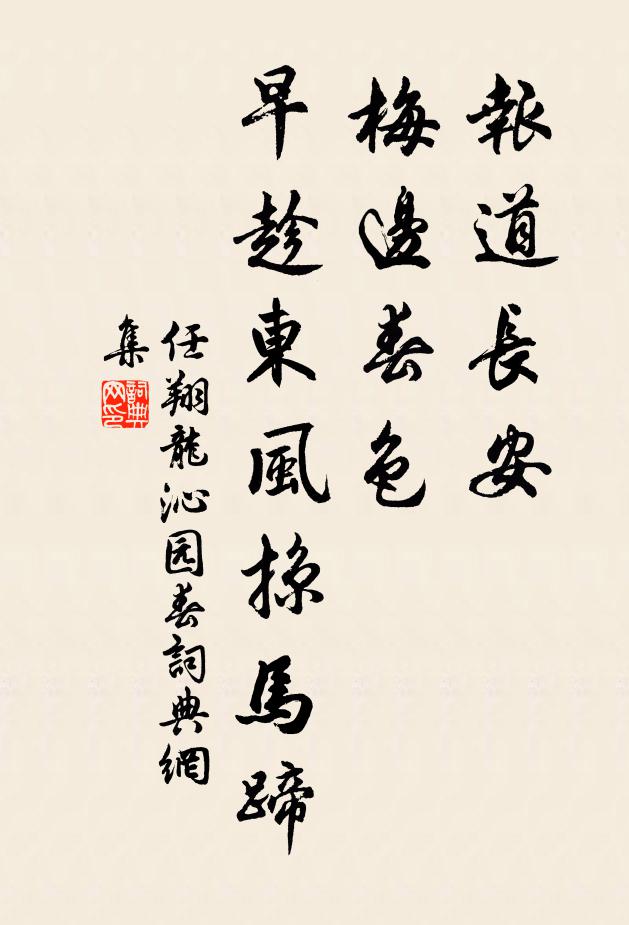 報道長安
梅邊春色
早趁東風掠馬蹄
任翔龍沁园春詞典網
集
詞典
网印